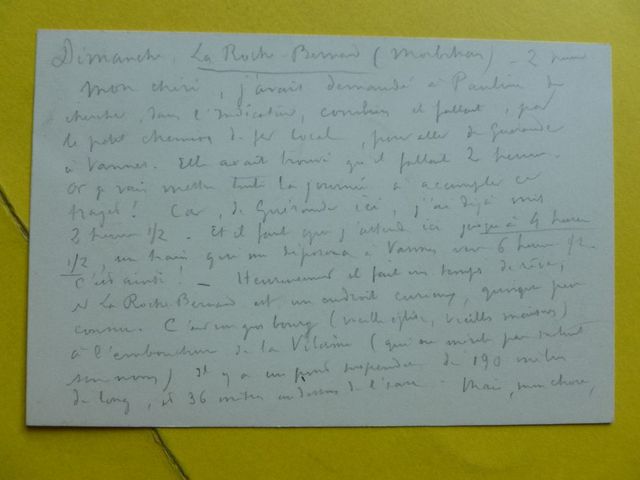 Dimanche, La Roche-Bernard (Morbihan) - 2 heures
Mon chéri, j'avais demandé à Pauline de
chercher, dans l'Indicateur, combien il fallait, par
le petit chemin de fer local, pour aller de Guérande
à Vannes. Elle avait trouvé qu'il fallait 2 heures.
Or je vais mettre toute la journée à accomplir ce
trajet! Car, de Guérande ici, j'ai déjà mis
2 heures 1/2. Et il faut que j'attende ici jusqu'à 4 heures
1/2, un train qui me déposera à Vannes vers 6 heures 1/2.
C'est ainsi! - Heureusement il fait un temps de rêve,
et La Roche-Bernard est un endroit curieux, quoique peu
connu. C'est un gros bourg (vieille église, vieilles maisons)
à l'embouchure de la Vilaine (qui ne mérite pas
son nom) Il y a un pont suspendu de 190 mètres
de long, et 36 mètres au dessus de l'eau - Mais, mon chéri,